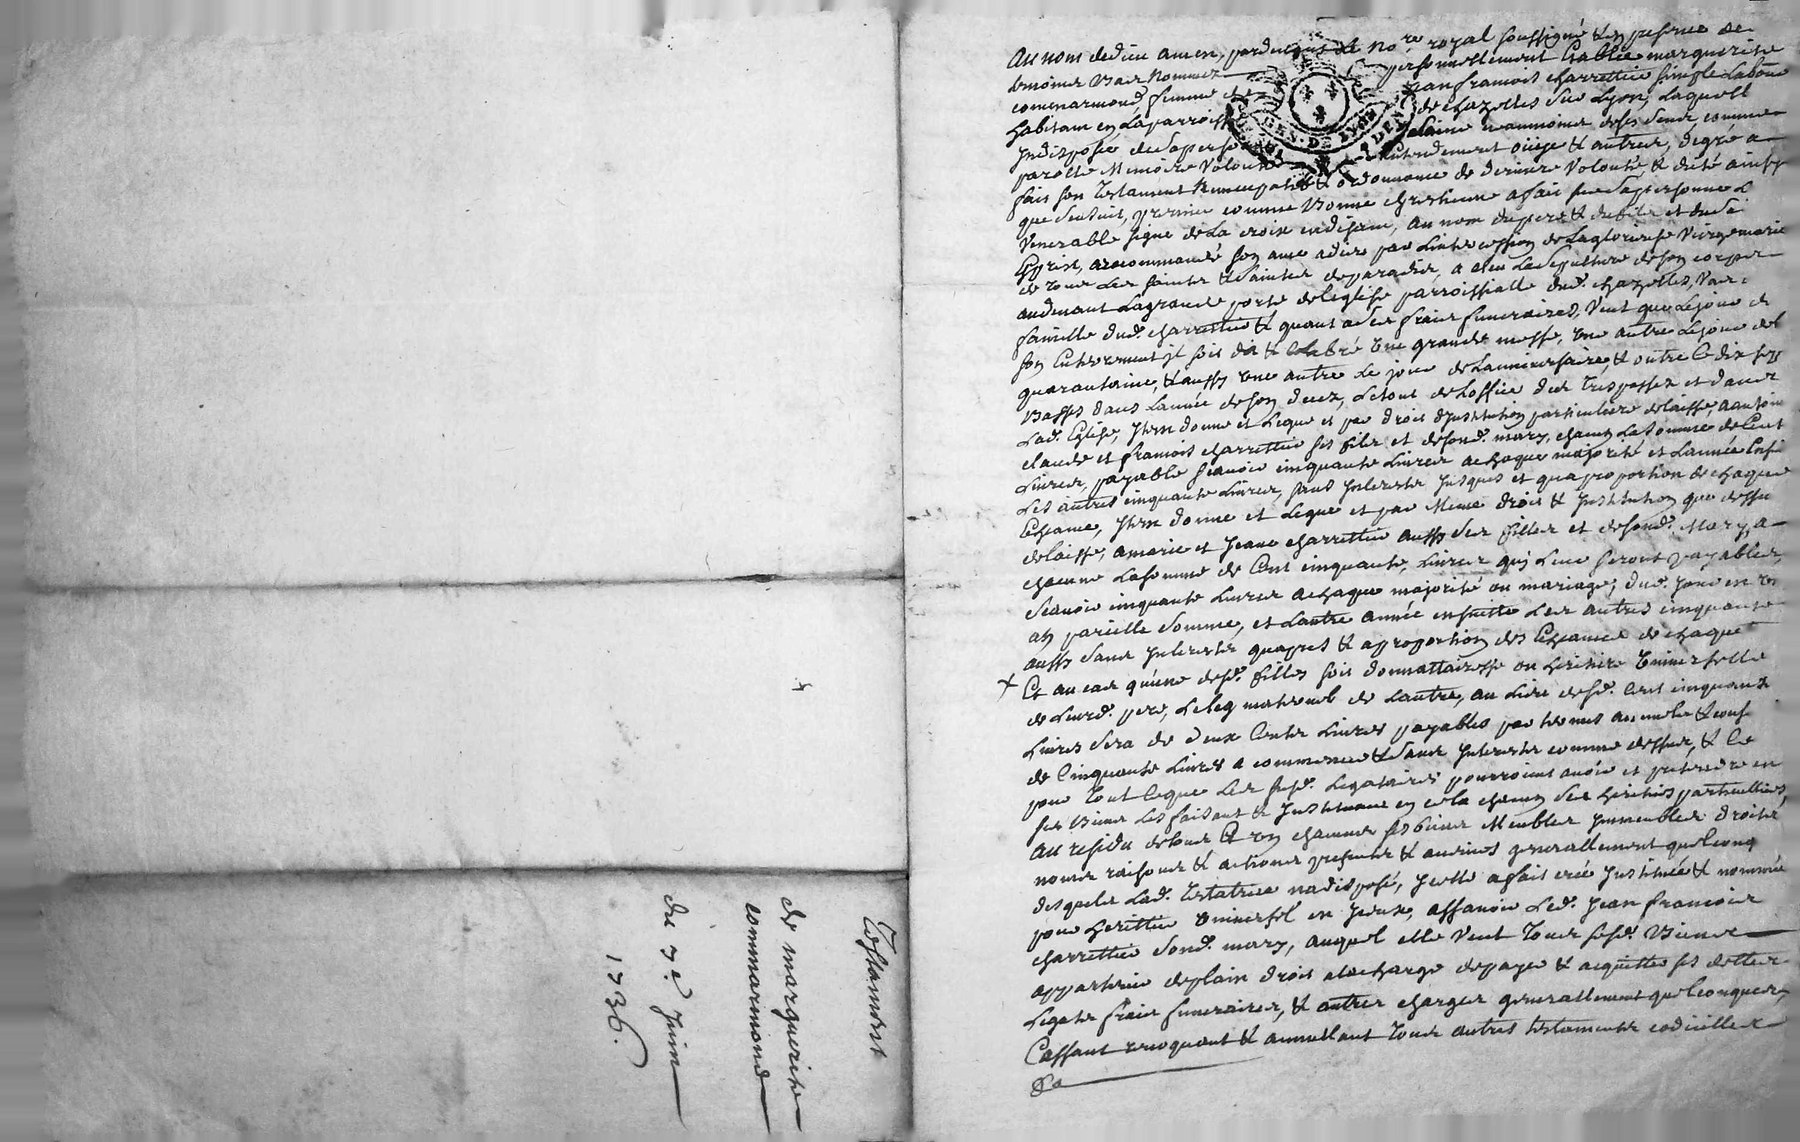 Testament
de marguerite
commarmond
du 7e. Juin
1736.
Au nom de dieu amen, pardevant le nore. royal soussigné & en presence de
temoins bas nommez personnellement Establie marguerite
commarmond, femme de jean francois charrettier simple Labour
habitant en la parroisse de chazelles sur Lyon, laquelle
Indisposée de sa personne saine neanmoins de ses sens comme
parolle Memoire Volonté Entendement ouije & autres, de gré a
fait son testament nuncupatif & ordonnance de derniere Volonté, & dicté ainsy
que s'ensuit, premier comme bonne chrestienne a fait sur sa personne L
Venerable signe de la croix en disant, au nom du pere & du fils et du st
Esprit, a recommandé son ame a dieu par Lintercession de La glorieuse Vierge marie
de tous Les saints & saintes de paradis, a eleu La sepulture de son corps
au devant La grande porte de leglise parroissialle dud. chazelles,
famille dud. charrettier & quant a ses fraix funeraires, veut que Le jour de
son Enterrement jl soit dit & celebré une grande messe, une autre Le jour de l
quarantaine, & aussy une autre Le jour de Lanniversaire, & outre Ce dix sept
basses dans Lannée de son decez, Le tout de Loffice des trespassez et dans
Lad. Eglise, Item donne et Legue et par droit d'Institution particuliere delaisse, a antoine
claude et francois charrettier ses fils et de sond. mary, chacun La somme de Cent
Livres, payable scavoir cinquante Livres a chaque majorité et Lannée
Les autres cinquante Livres, sans Interests jusques et qua proportion de chaque
Echeance, Item donne et Legue et par Meme droit & Institution que dessu
delaisse, a marie et jeane charrettier aussy ses filles et de sond. Mary, a
chacune La somme de Cent cinquante Livres quj Leur seront payables,
Scavoir cinquante Livres a chaque majorité ou mariage, dud. jour en un
an pareille somme, et Lautre année ensuitte Les autres cinquante
aussy sans Interests quapres & a proportion des Echeances de chaque
x Et au cas qu'une desd. filles soit donnattairesse ou heritiere Universelle
de Leurd. pere, Le leg maternel de Lautre, au Lieu desd. Cent cinquante
Livres sera de deux Cents Livres payables par termes annuels &
de Cinquante Livres a commencer & sans Interests comme dessus, & Ce
pour tout Ce que Les susd. Legataires pourroient avoir et pretendre en
ses biens Les faisant & Instituant en cela chacun ses heritiers particulliers,
Au residu de tous Et un chacuns ses biens Meubles Immeubles droits
noms raisons & actions presents & avenirs generallement quelconq
desquels Lad. testatrice na disposé, jcelle a fait creé Institué & nommé
pour heritier Universel en jceux, assavoir Led. Jean francois
charrettier sond. mary, auquel elle veut tous sesd. biens
appartenir de plain droit a la charge de payer & acquitter ses dettes
Legats fraix funeraires, & autres charges generallement quelconques,
Cassant revoquant & annullant tous autres testaments codicilles
&a